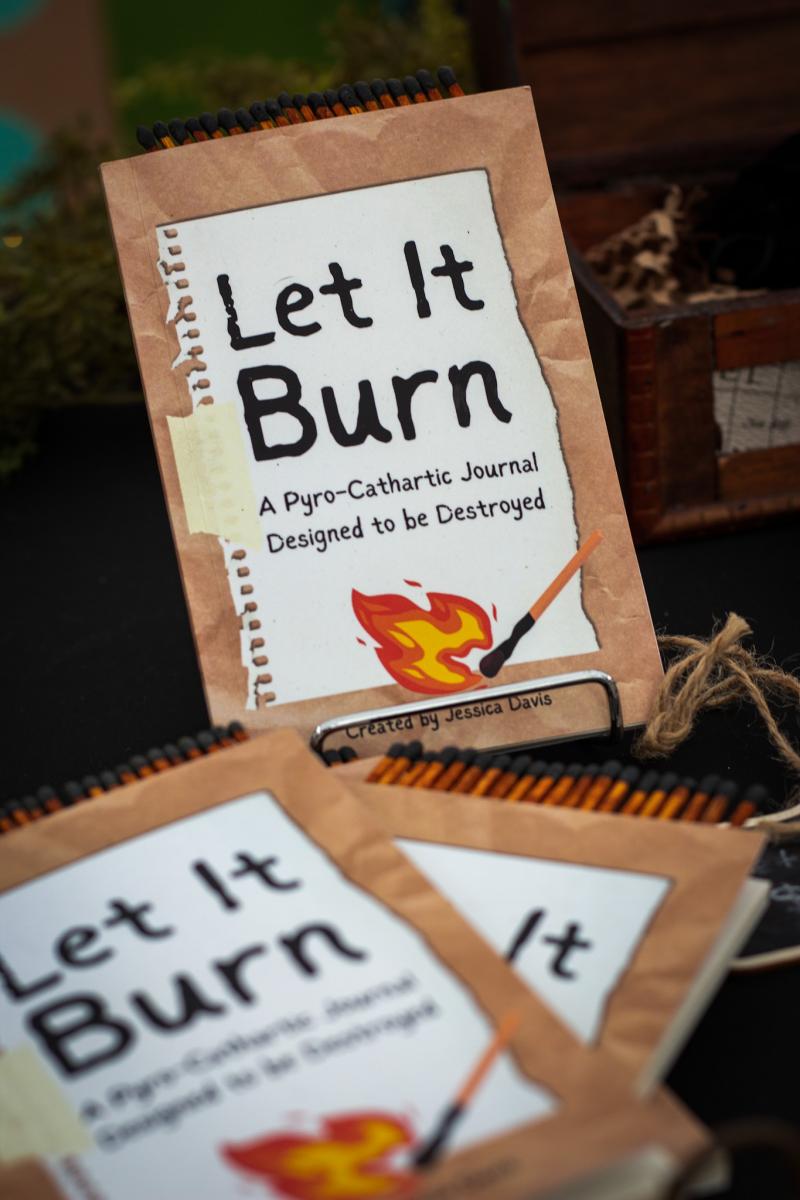 Let It
Burn
A Pyro-Cathartic Journal
Designed to be Destroyed
Created by Jessica Davis
Let It
Burn
A Pyro-Cathartic Journal
Designed to be Destroyed
It